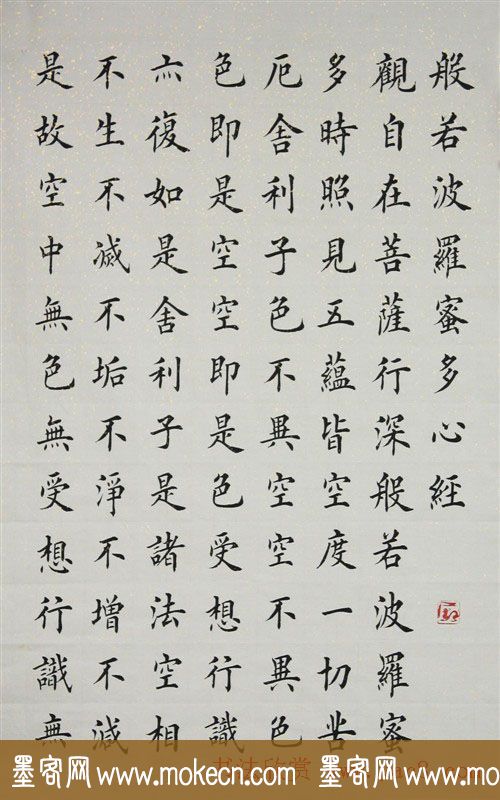 般若波羅蜜多心經
觀自在菩薩行深般若波羅蜜
多時照見五蘊皆空度一切苦
厄舍利子色不異空空不異色
色即是空空即是色受想行識
亦復如是舍利子是諸法空相
不生不滅不垢不淨不增不減
是故空中無色無受想行識無
墨客网www.mokecn.com 墨客网www.mokecn.com
书法欣赏